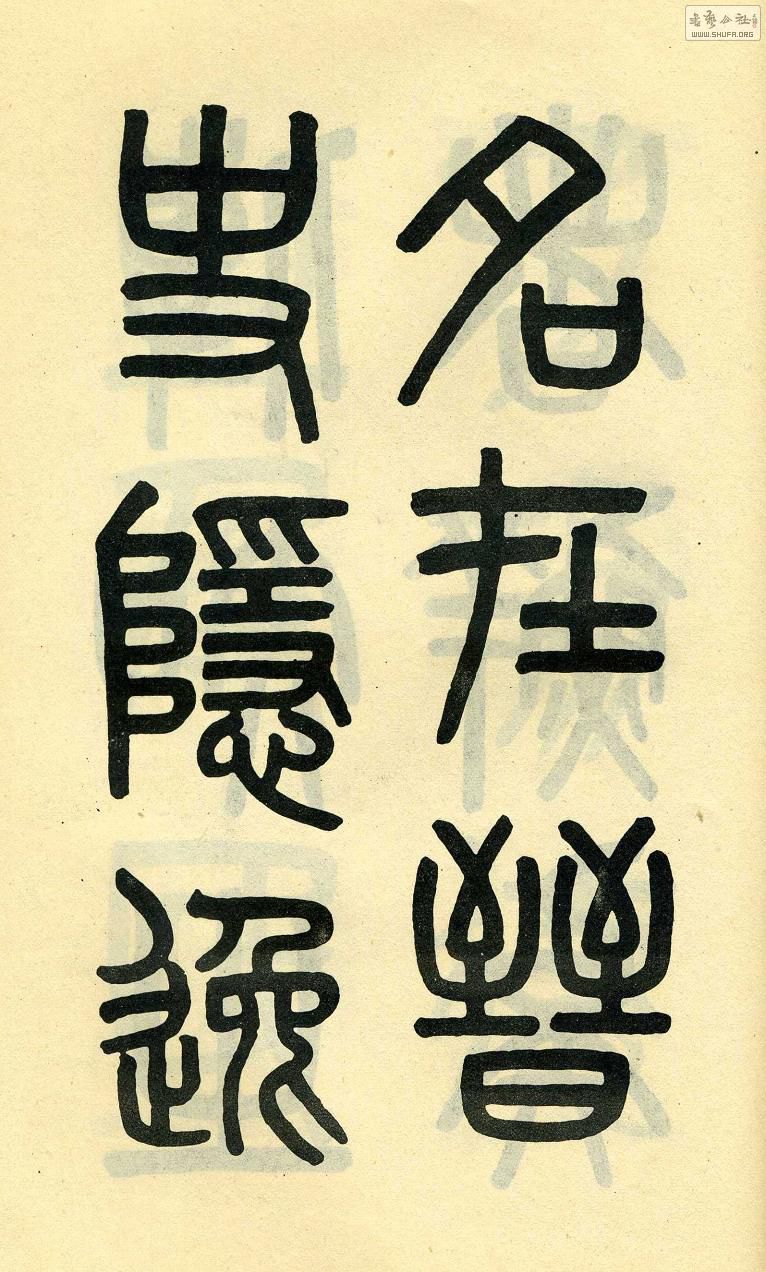 名在晉
史隱逸
书艺公社
WWW.SHUFA.ORG